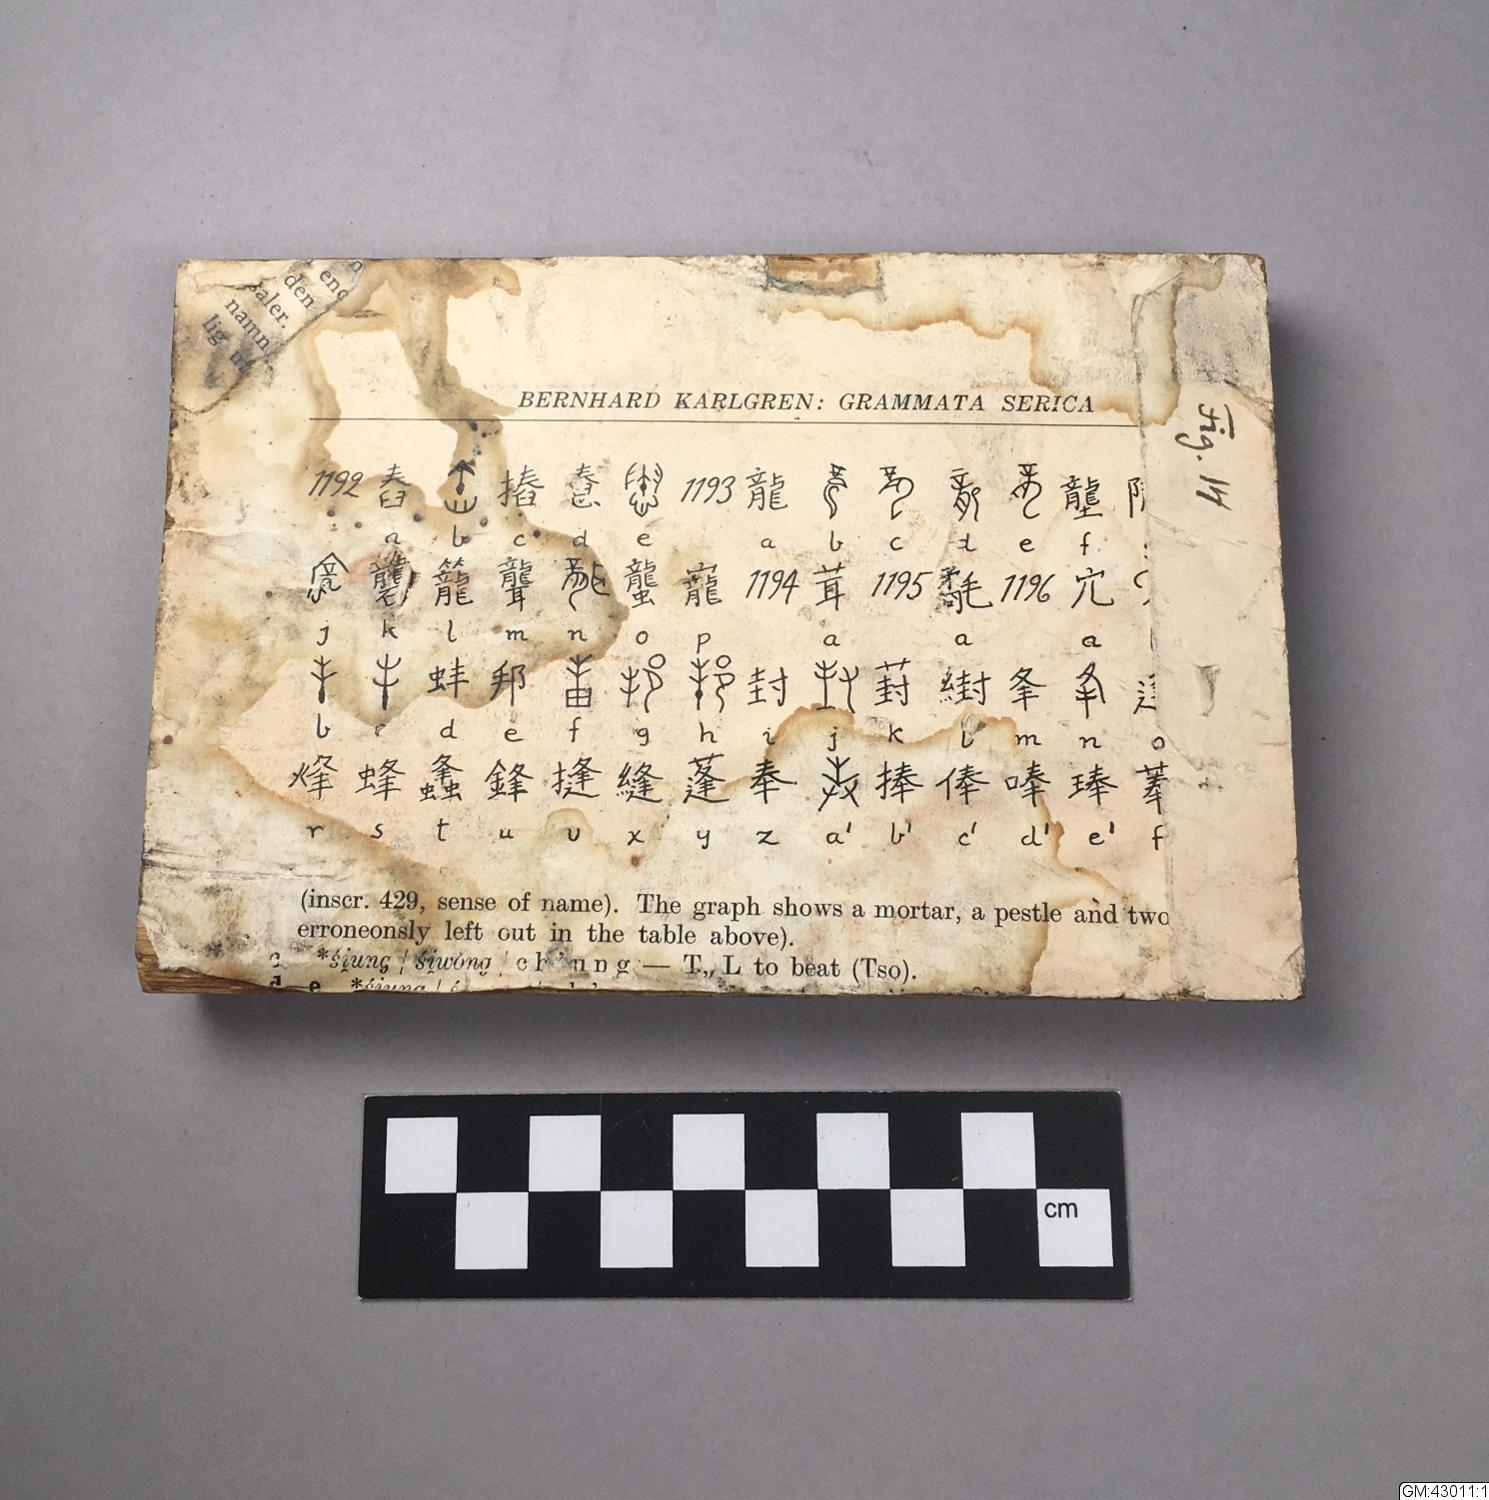 end
den
aler.
namn
lig
BERNHARD KARLGREN: GRAMMATA SERICA
Fig. 14
1192 舂 摏 惷 1193 龍 壟
a b c d e a b c d e f
襲 籠 聾 蠪 竉 1194 茸 1195 1196 宂
j k l m n o p a a a
蚌 邦 封 葑 夆
b c d e f g h i j k l m n o
烽 蜂 鋒 摓 縫 蓬 奉 捧 俸 唪 琫 菶
r s t u v x y z a' b' c' d' e' f
(inscr. 429, sense of name). The graph shows a mortar, a pestle and two
erroneonsly left out in the table above).
c *śi̯ung / śi̯wong / ch'ung — T„ L to beat (Tso).
d e *śi̯ung /
cm
GM:43011:1